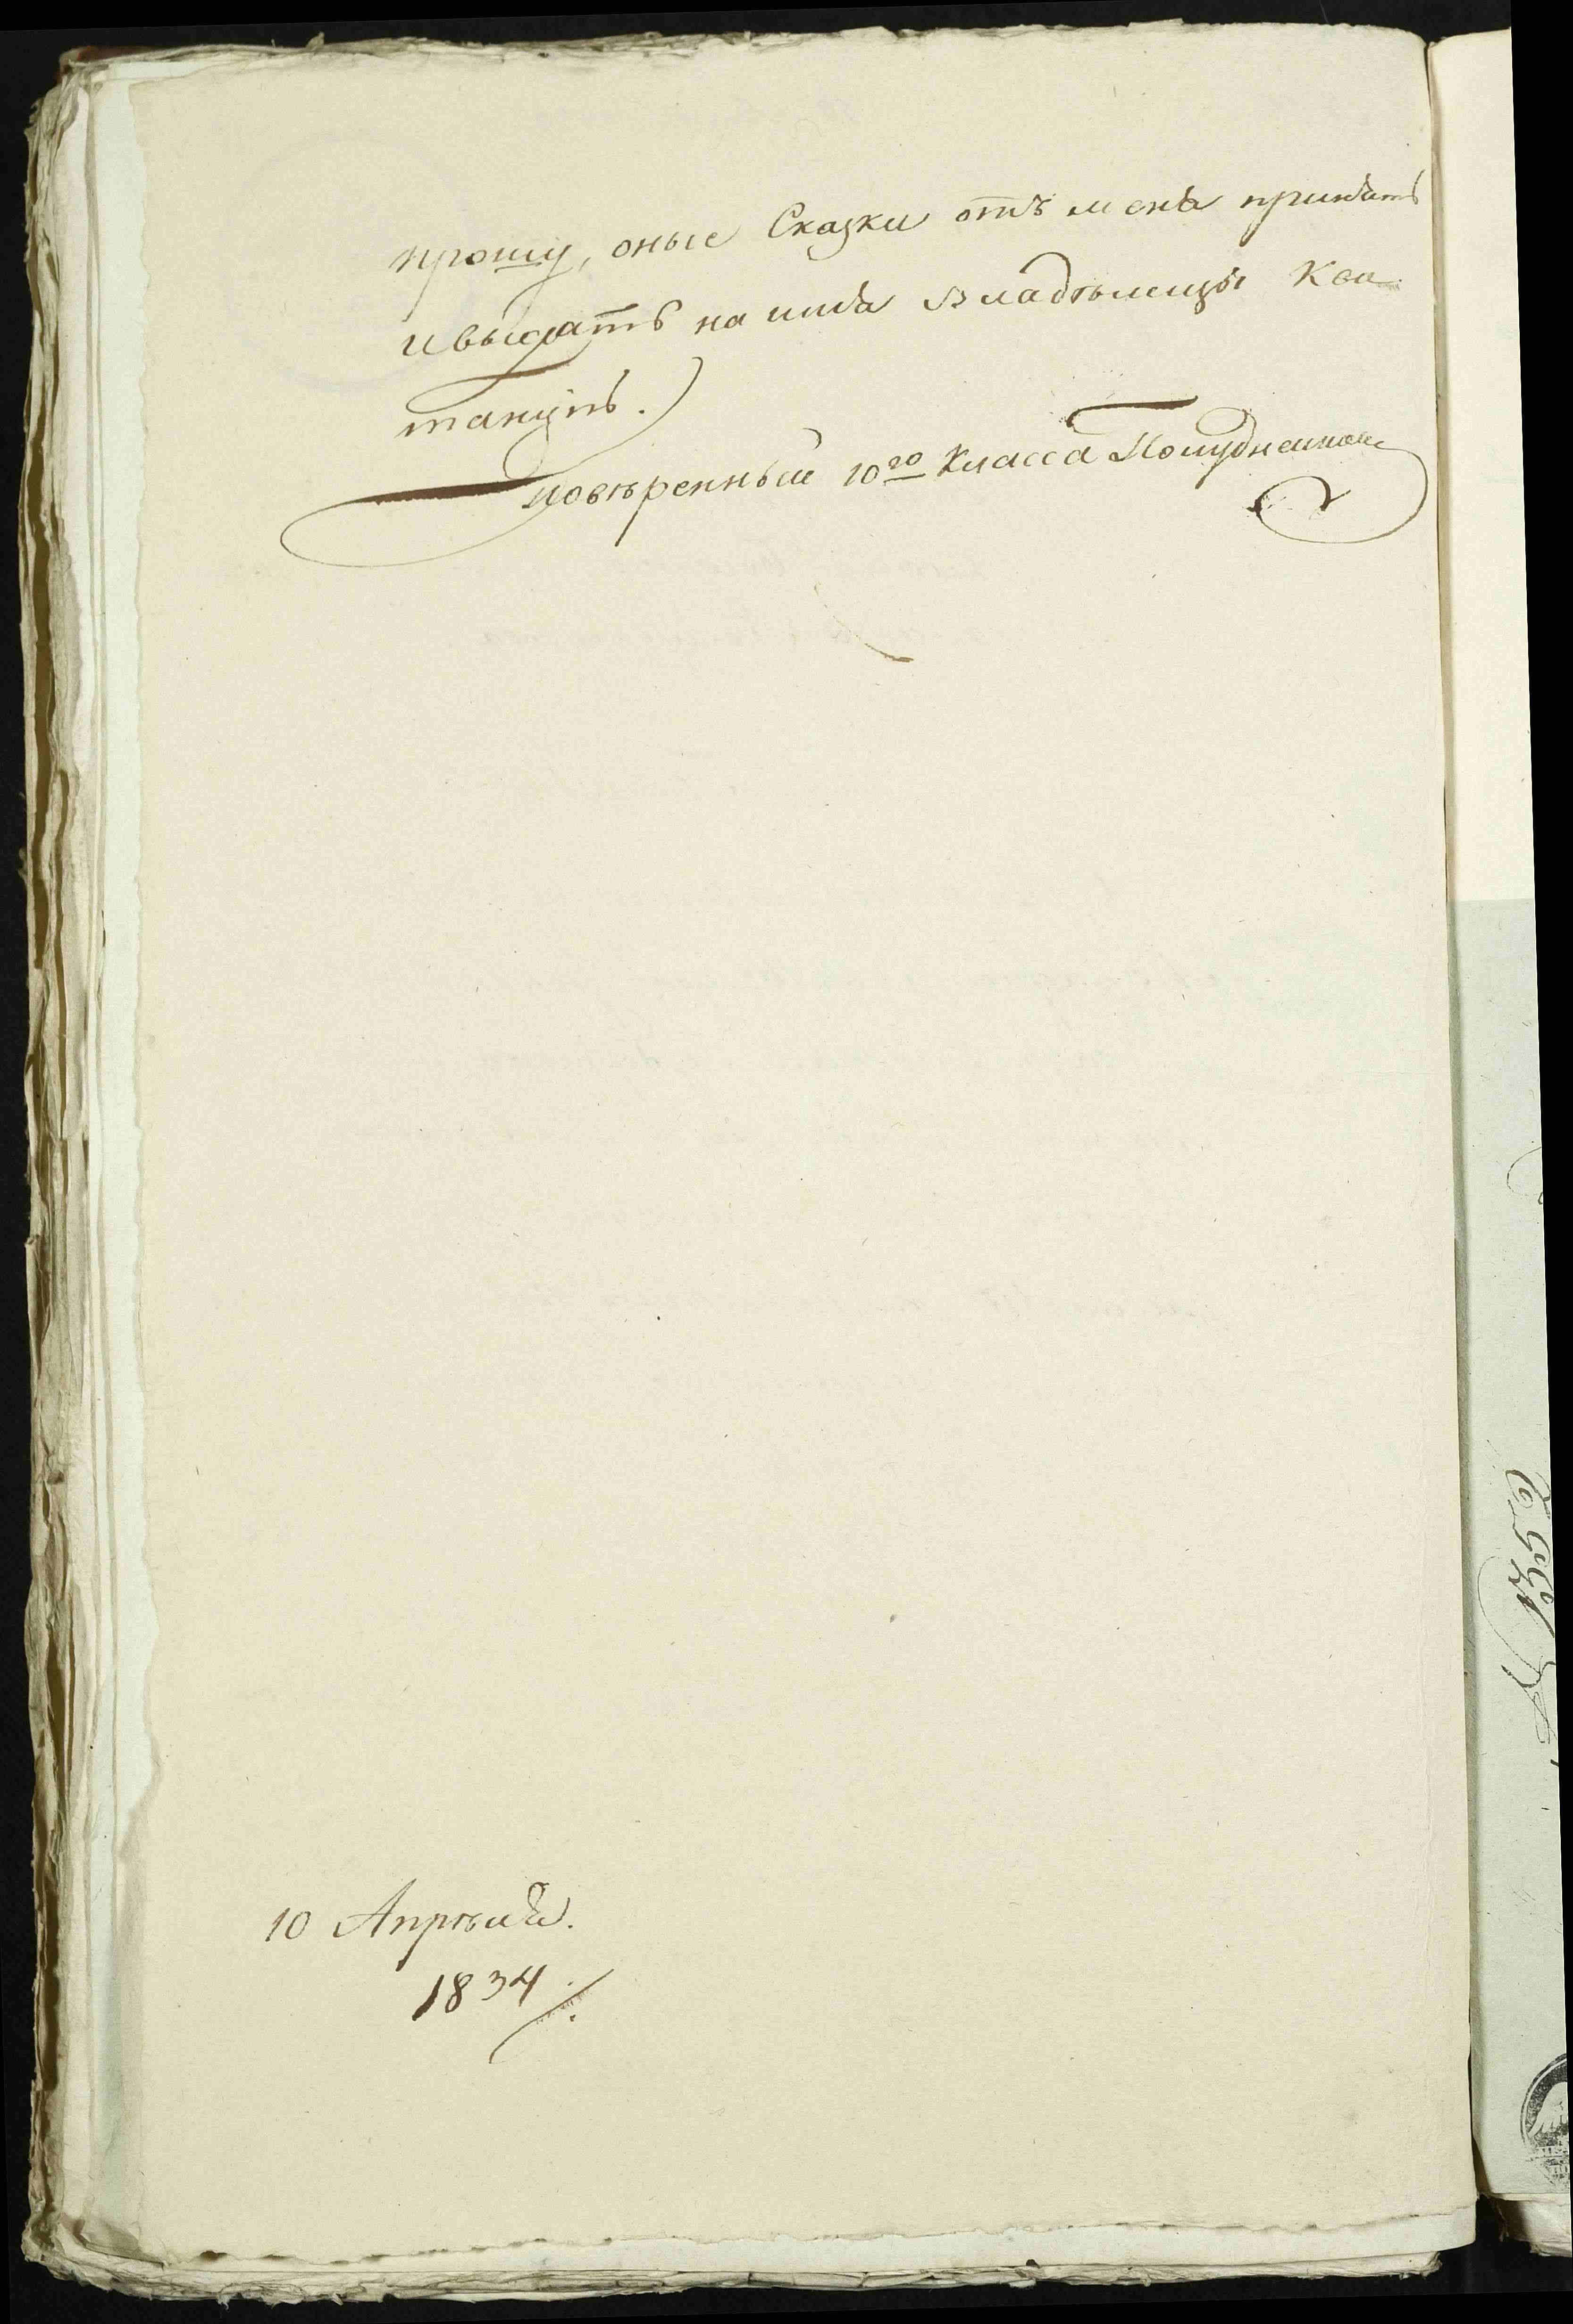 прошу, оные Сказки отъ меня принять
ивыдать на имя Владѣлицы Кви-
танцiю.
Повѣренный 10го Класса
10 Апрѣля.
1834